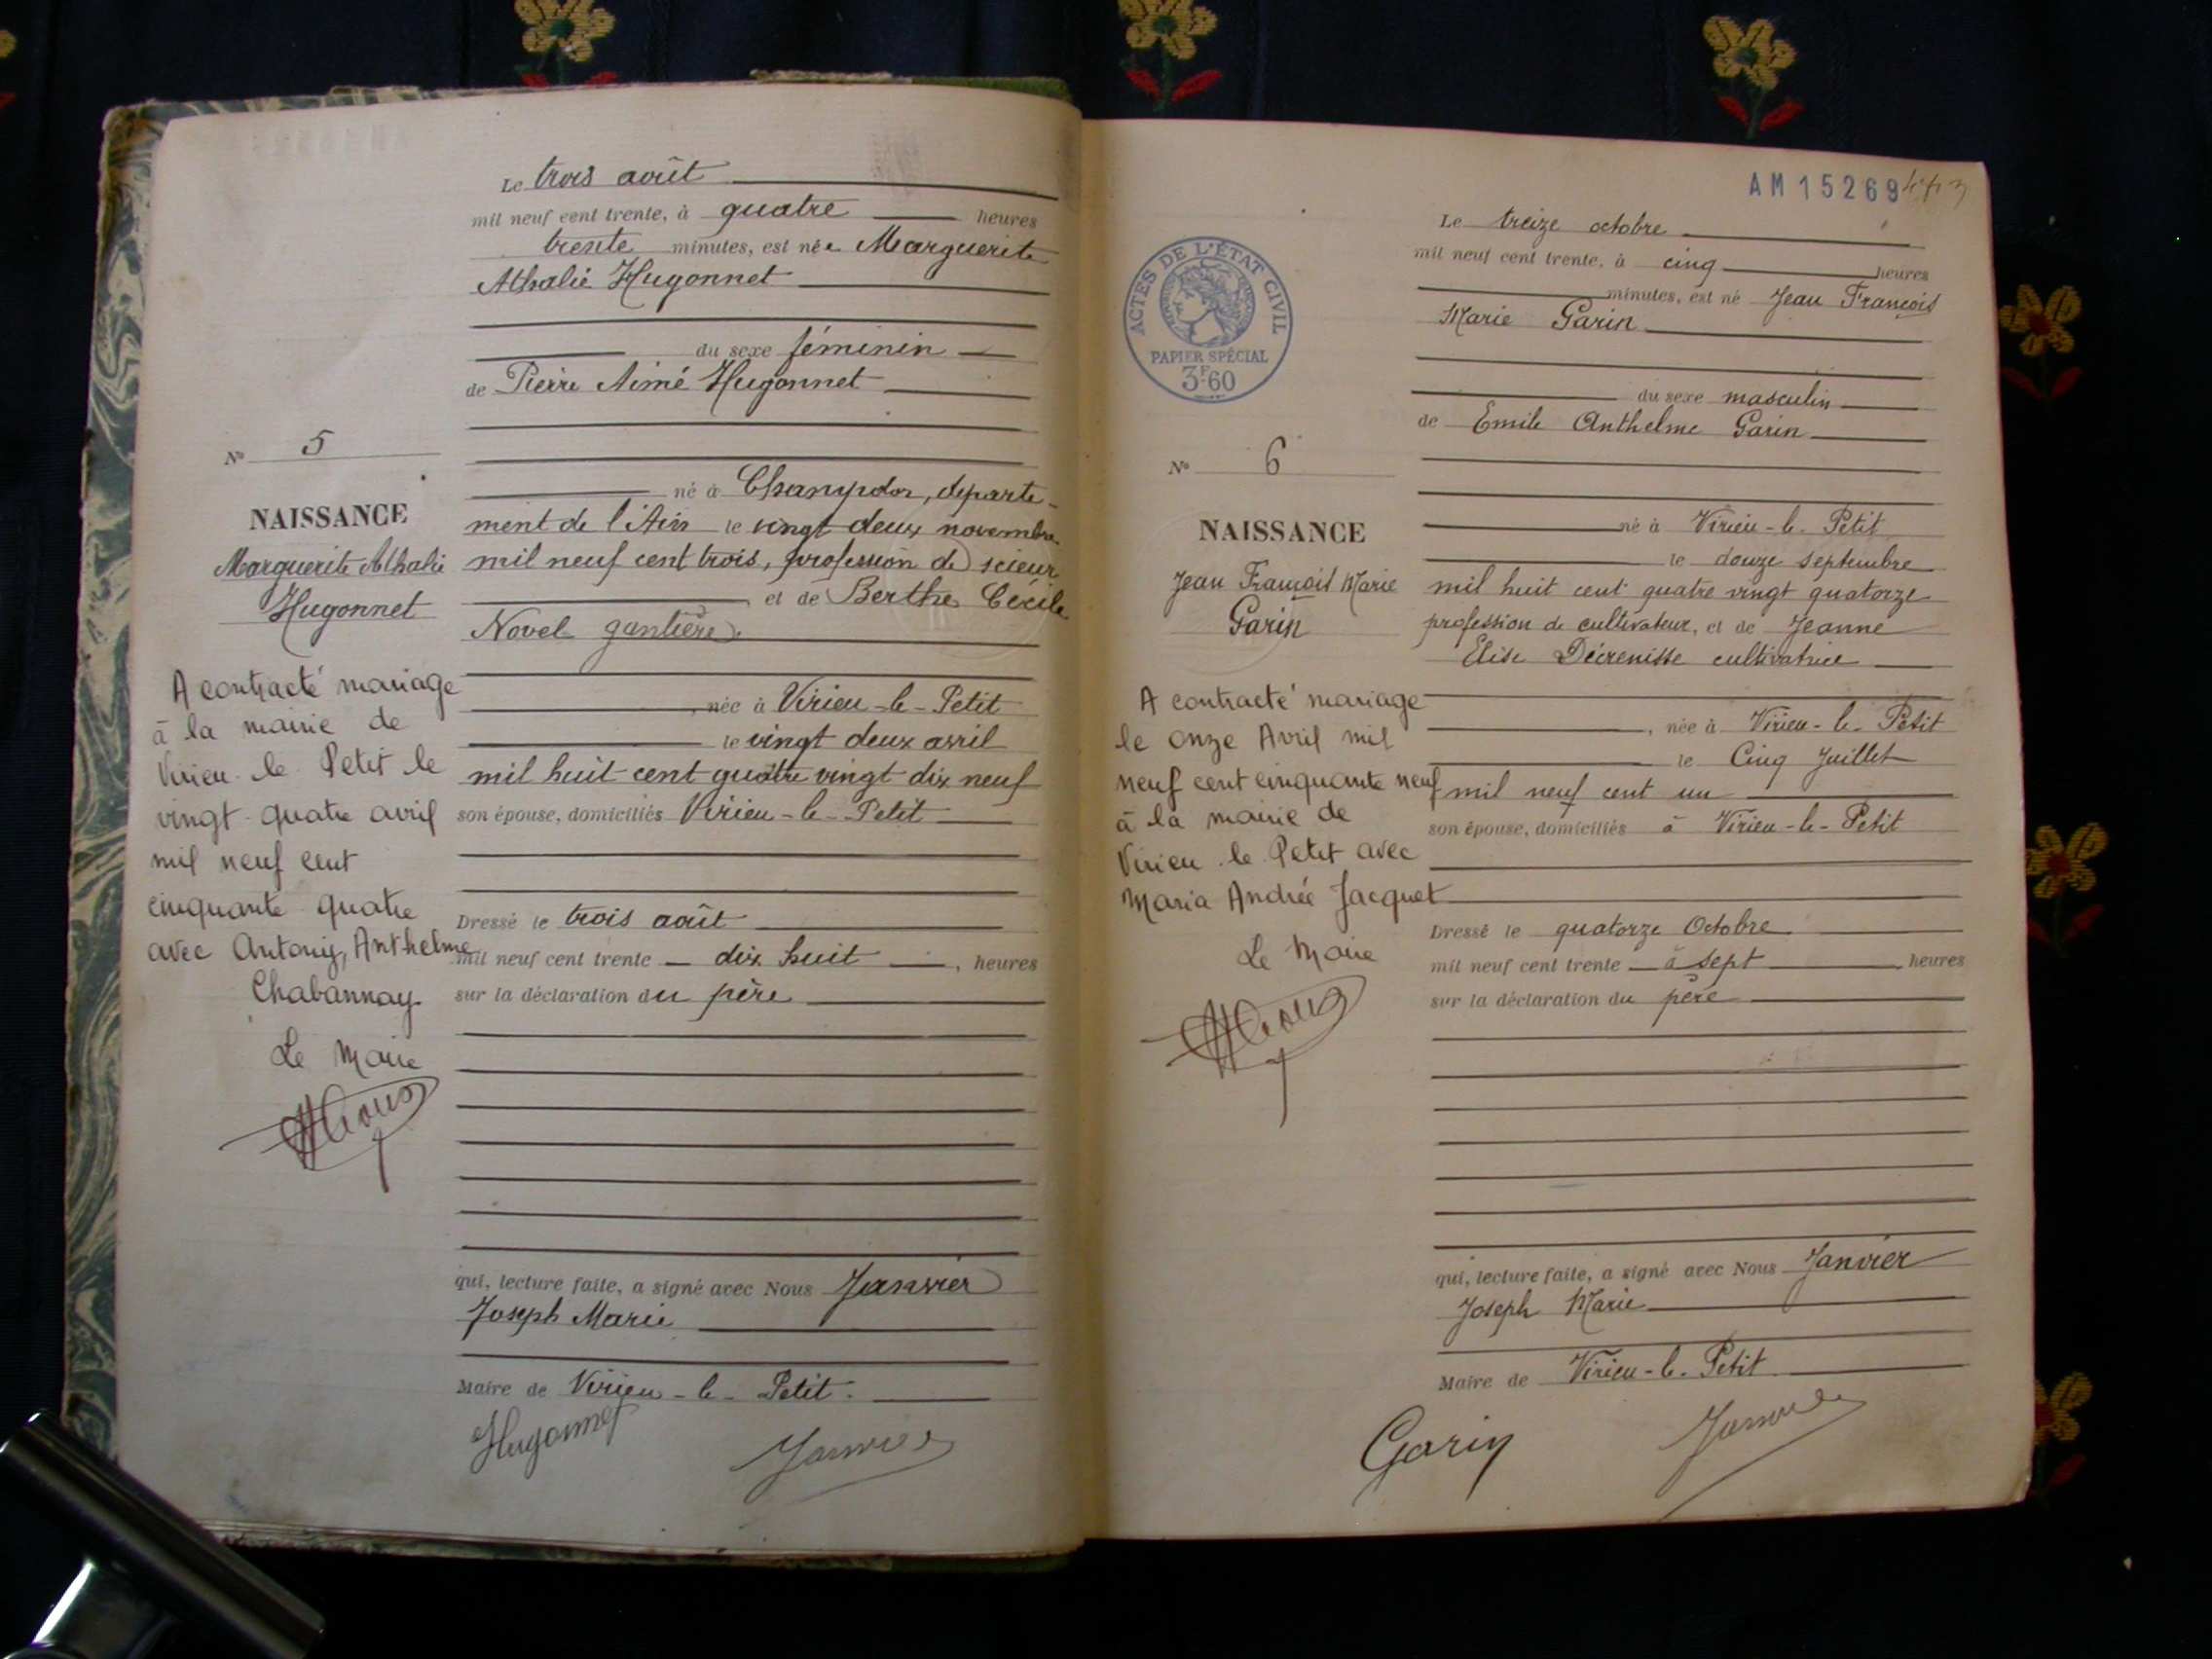 Le trois août
mil neuf cent trente, à quatre heures
trente minutes, est née Marguerite
Athalie Hugonnet
du sexe féminin
de Pierre Aimé Hugonnet
N° 5
NAISSANCE
Marguerite Athalie
Hugonnet
né à Champdor, départe-
ment de l'Ain le vingt deux novembre
mil neuf cent trois, profession de scieur
et de Berthe Cécile
Novel gantière
, née à Virieu-le-Petit
le vingt deux avril
mil huit cent quatre vingt dix neuf
son épouse, domiciliés Virieu-le-Petit
A contracté mariage
à la mairie de
Virieu le Petit le
vingt quatre avril
mil neuf cent
cinquante quatre
avec Antony, Anthelme
Chabannay
Le Maire
Dressé le trois août
mil neuf cent trente dix huit, heures
sur la déclaration du père
qui, lecture faite, a signé avec Nous Janvier
Joseph Marie
Maire de Virieu-le-Petit.
Hugonnet
Janvier
AM 15269
ACTES DE L'ÉTAT CIVIL
PAPIER SPÉCIAL
3F.60
Le treize octobre
mil neuf cent trente, à cinq heures
minutes, est né Jean François
Marie Garin
du sexe masculin
de Emile Anthelme Garin
N° 6
NAISSANCE
Jean François Marie
Garin
né à Virieu-le-Petit
le douze septembre
mil huit cent quatre vingt quatorze
profession de cultivateur, et de Jeanne
Elise Décrenisse cultivatrice
, née à Virieu-le-Petit
le Cinq Juillet
mil neuf cent un
son épouse, domiciliés à Virieu-le-Petit
A contracté mariage
le onze Avril mil
neuf cent cinquante neuf
à la mairie de
Virieu le Petit avec
Maria Andrée Jacquet
Le Maire
Dressé le quatorze Octobre
mil neuf cent trente à sept, heures
sur la déclaration du père
qui, lecture faite, a signé avec Nous Janvier
Joseph Marie
Maire de Virieu-le-Petit
Garin
Janvier